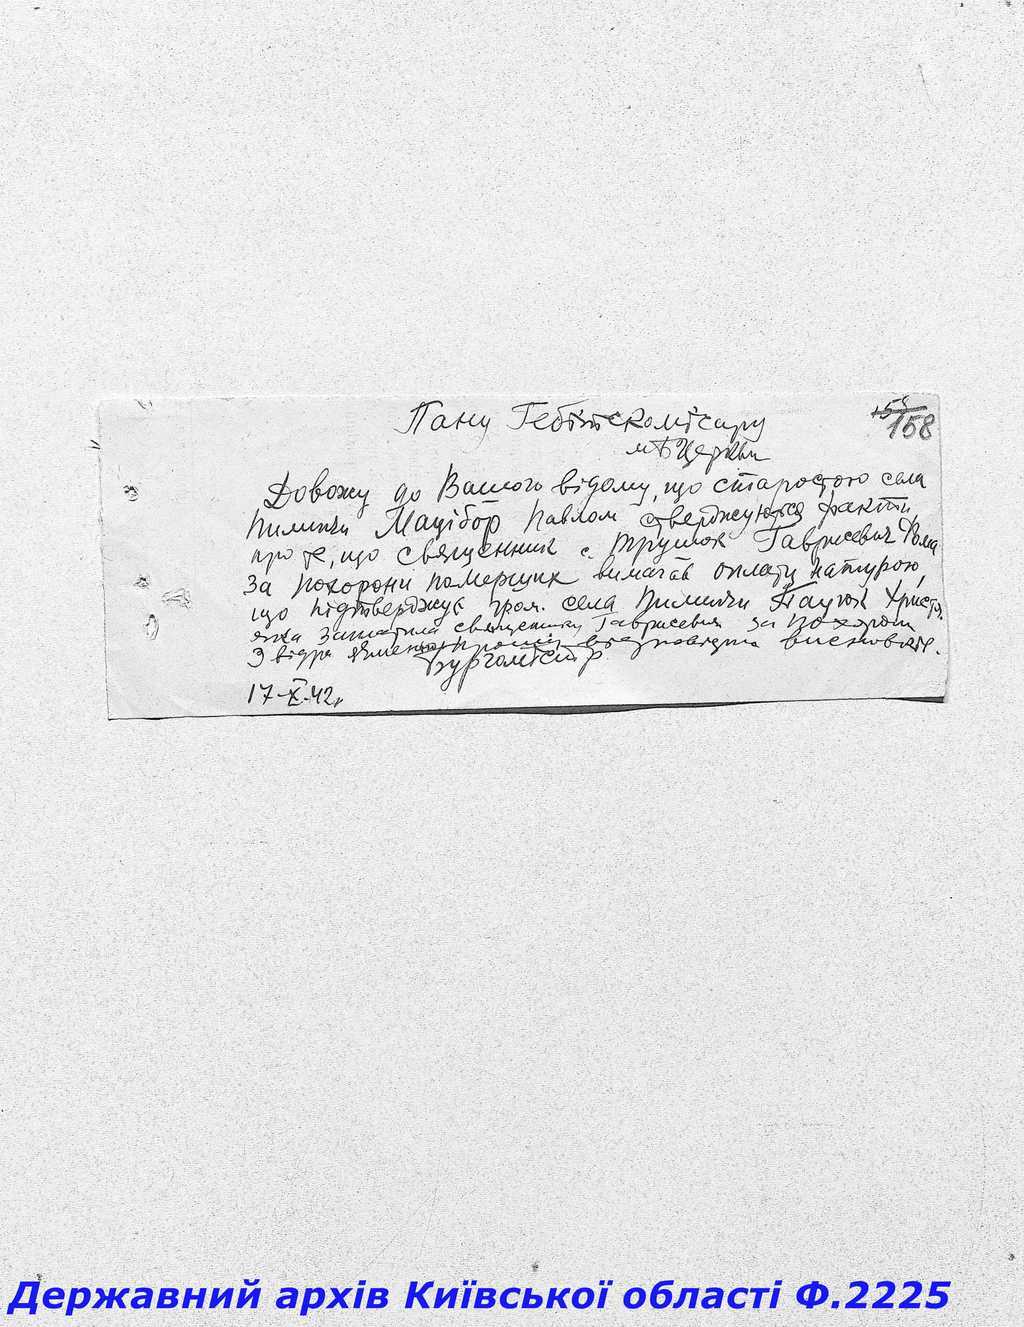 158
Пану Гебітскомісару
м Б Церкви
Довожу до Вашого відому, що старостою села
Пилипчи Мацібор Павлом стверджуються факти
про те, що священник с. Трушок Гаврисевич Хома
за похорони померших вимагав оплату натурою,
що підтверджує гром. села Пилипчи Пацюк Христя,
яка заплатила священнику Гаврисевич за похорони
3 відра прошу відповідних висновків.
Бургомістр
17-X-42р
Державний архів Київської області Ф.2225